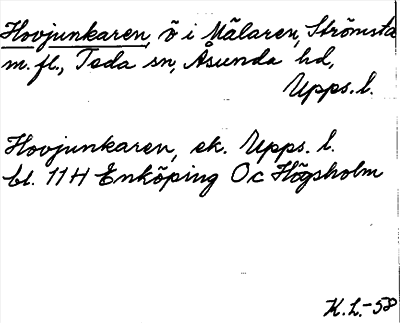 Hovjunkaren, ö i Mälaren, Strömsta
m. fl., Teda sn, Åsunda hd,
Upps. l.
Hovjunkaren, ek. Upps. l.
bl. 11 H Enköping Oc Högsholm
K.L.-58